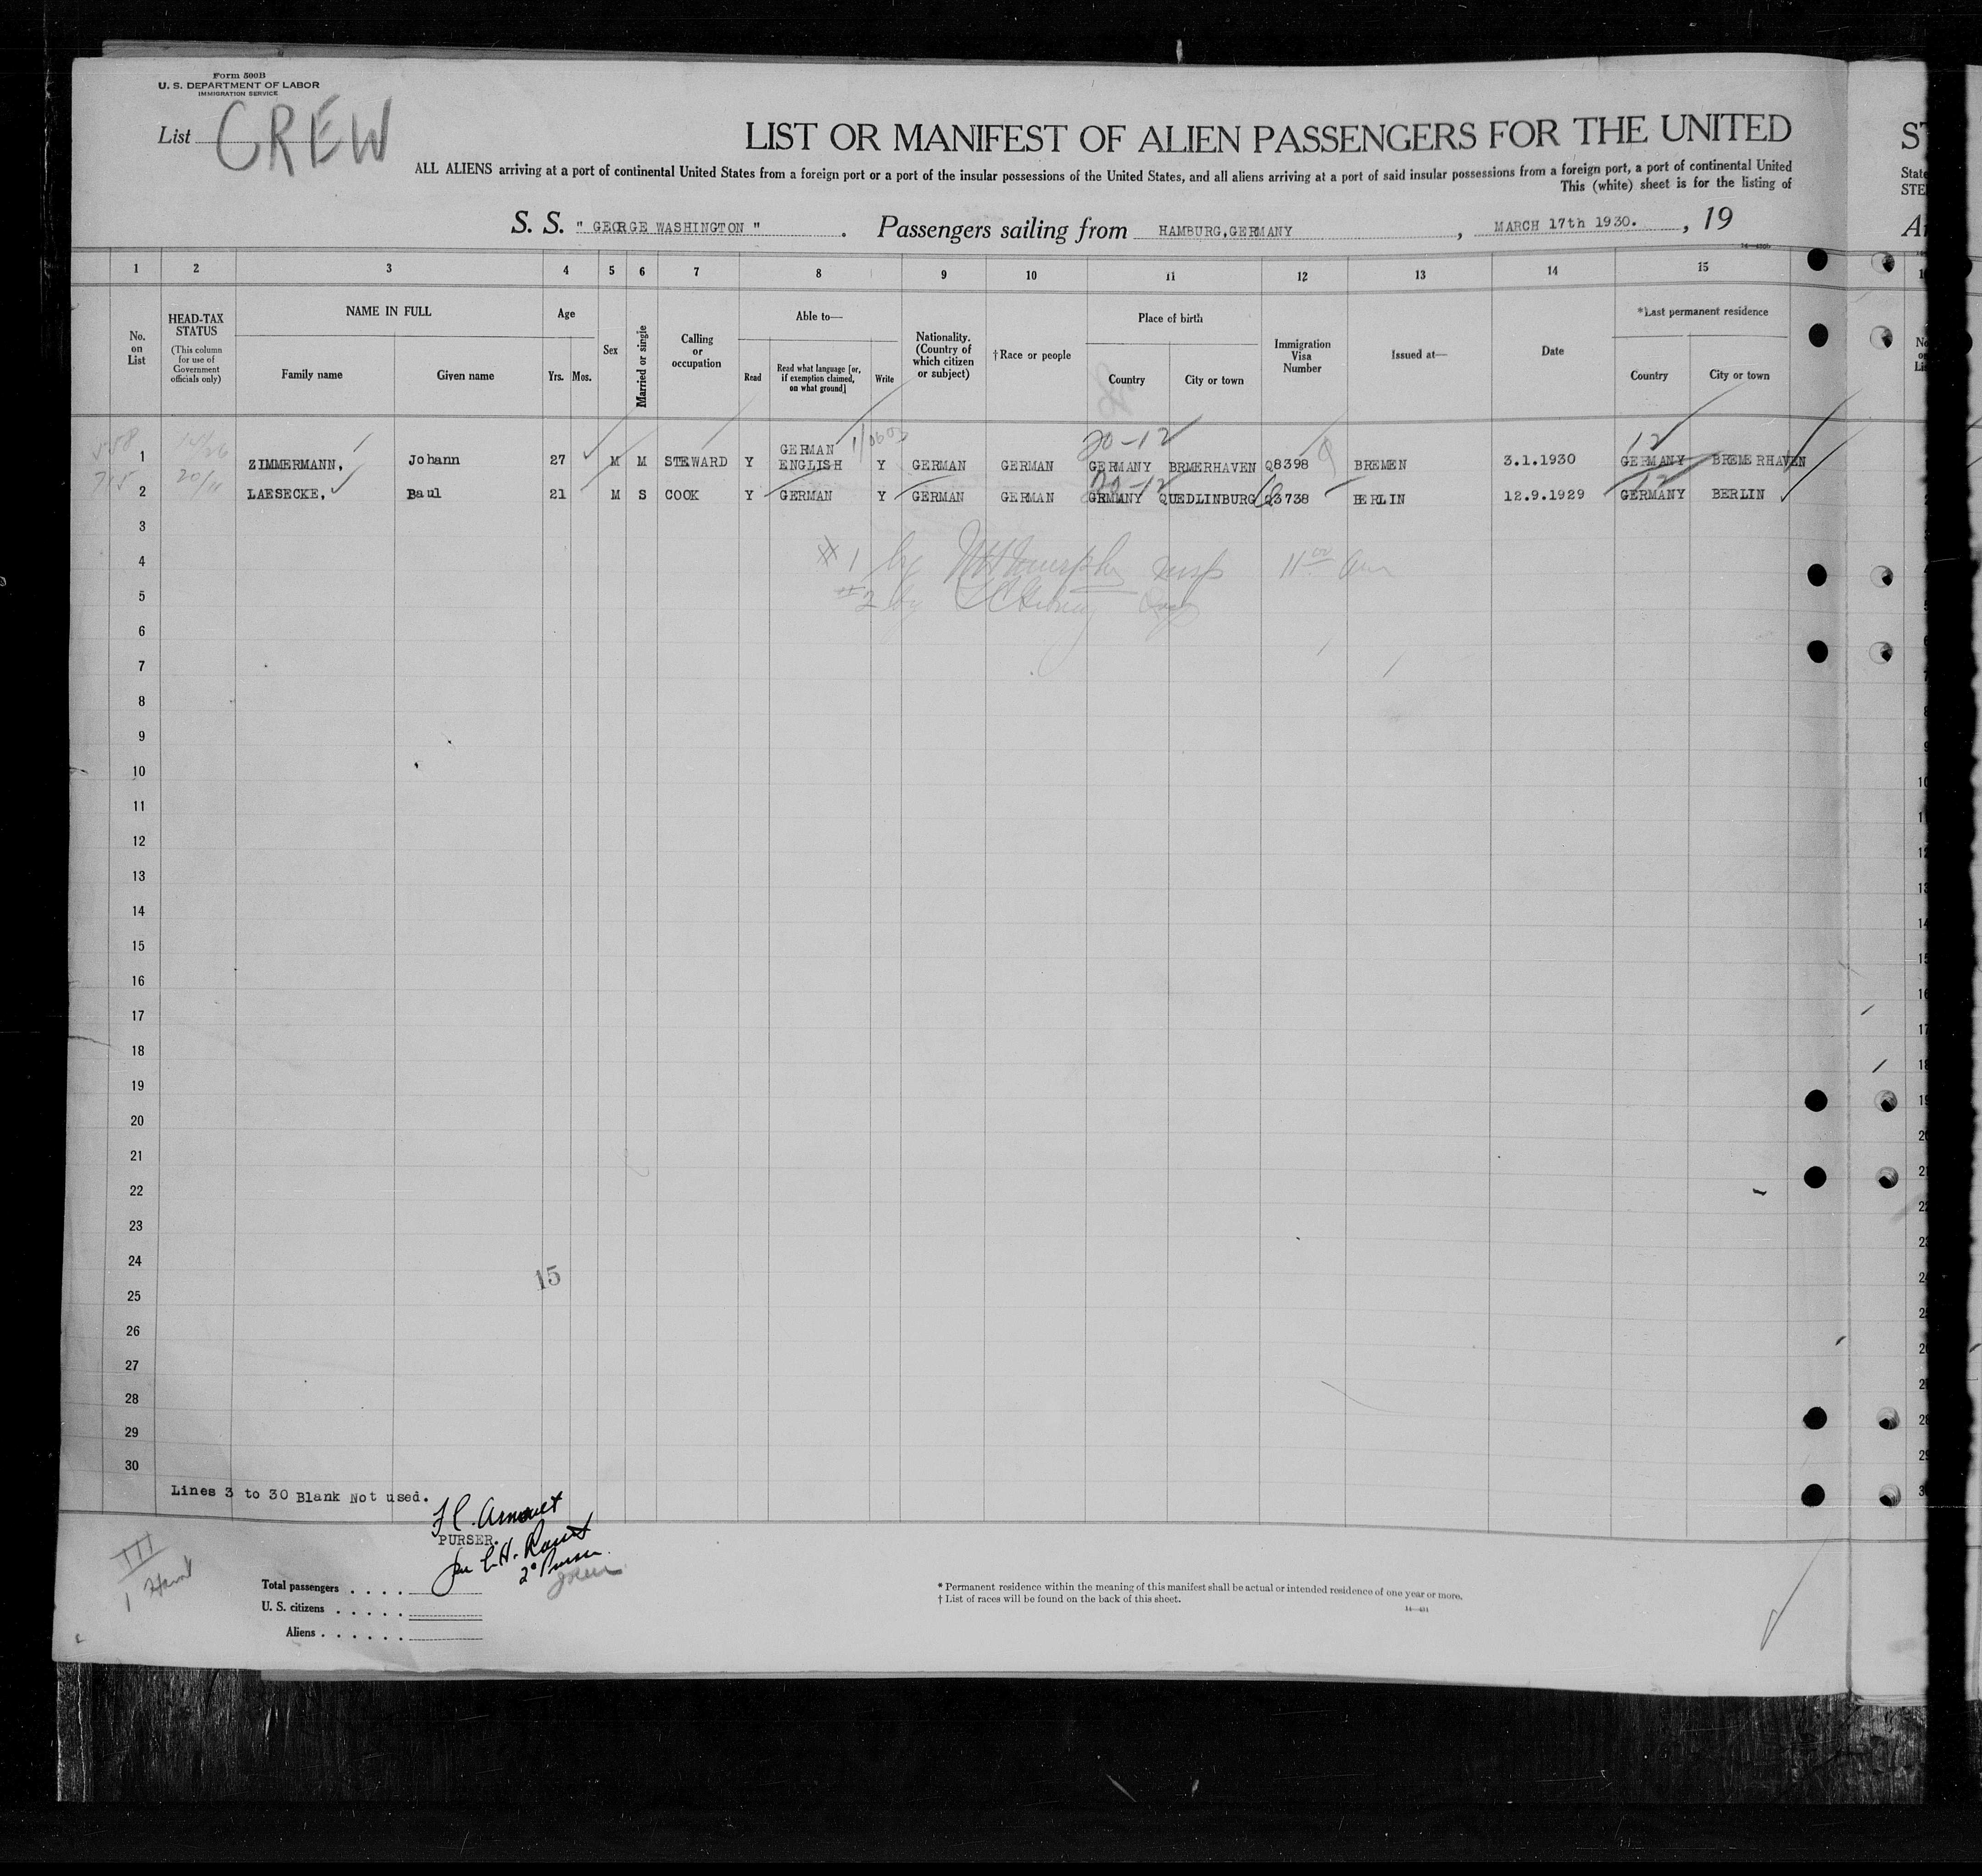 Form 500B
U. S. DEPARTMENT OF LABOR
IMMIGRATION SERVICE
List CREW
LIST OR MANIFEST OF ALIEN PASSENGERS FOR THE UNITED
ALL ALIENS arriving at a port of continental United States from a foreign port or a port of the insular possessions of the United States, and all aliens arriving at a port of said insular possessions from a foreign port, a port of continental United
This (white) sheet is for the listing of
S. S. " GEORGE WASHINGTON " . Passengers sailing from HAMBURG,GERMANY , MARCH 17th 1930. , 19
1 2 3 4 5 6 7 8 9 10 11 12 13 14 15
No. on List
HEAD-TAX STATUS
(This column for use of Government officials only)
NAME IN FULL
Family name Given name
Age
Yrs. Mos.
Sex
Married or single
Calling or occupation
Able to—
Read
Read what language [or, if exemption claimed, on what ground]
Write
Nationality. (Country of which citizen or subject)
†Race or people
Place of birth
Country City or town
Immigration Visa Number
Issued at—
Date
*Last permanent residence
Country City or town
20-12 12
1 ZIMMERMANN, Johann 27 M M STEWARD Y GERMAN ENGLISH Y GERMAN GERMAN GERMANY BRMERHAVEN Q8398 BREMEN 3.1.1930 GERMANY BREMERHAVEN
20-12 12
2 LAESECKE, Baul 21 M S COOK Y GERMAN Y GERMAN GERMAN GRMANY QUEDLINBURG Q3738 BERLIN 12.9.1929 GERMANY BERLIN
3
4
#1 by 11 00 am
5
#2 by
6
7
8
9
10
11
12
13
14
15
16
17
18
19
20
21
22
23
24
15
25
26
27
28
29
30
Lines 3 to 30 Blank Not used.
PURSER.
Total passengers . . . .
U. S. citizens . . . . .
Aliens . . . . . .
* Permanent residence within the meaning of this manifest shall be actual or intended residence of one year or more.
† List of races will be found on the back of this sheet.
14—431